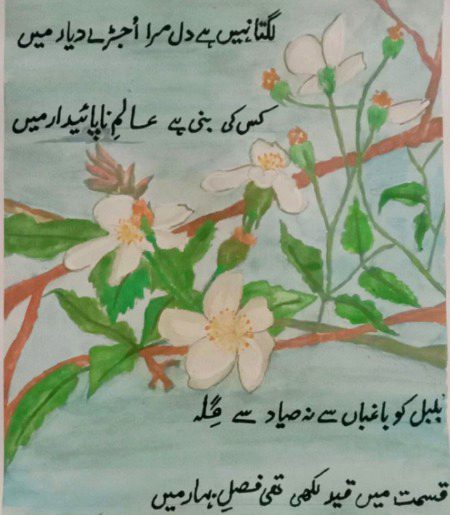 لگتا نہیں ہے دل مرا اُجڑے دیار میں
کس کی بنی ہے عالمِ ناپائیدار میں
بلبل کو باغباں سے نہ صیاد سے گِلہ
قسمت میں قید لکھی تھی فصلِ بہار میں